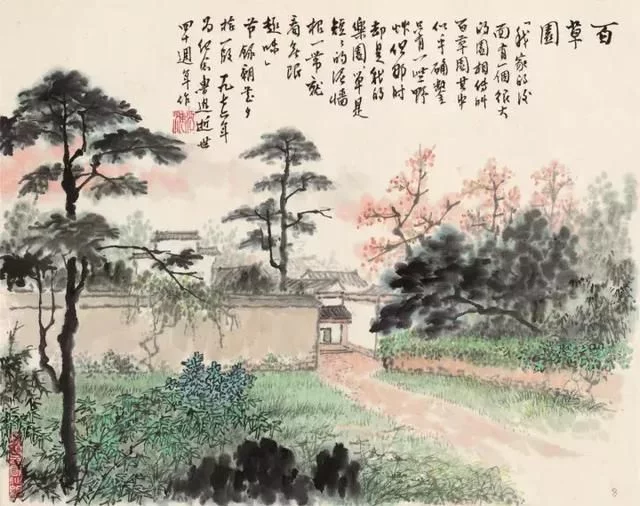 百草園
「我家的後
面有一個很大
的園相传叫
百草園其中
似乎确鑿
只有一些野
草但那时
却是我的
樂園单是
短〻的泥墙
根一带就
有无限
趣味」
节錄朝花夕
拾一段 一九七六年
为纪念鲁迅逝世
四十週年作